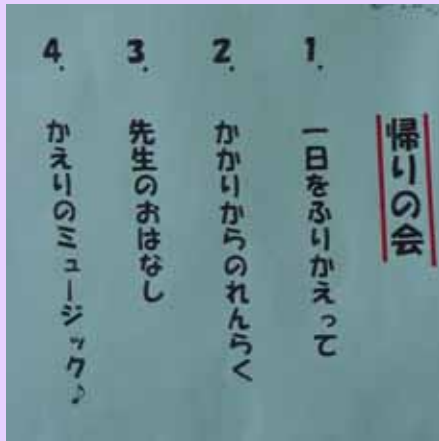 帰りの会
1. 一日をふりかえって
2. かかりからのれんらく
3. 先生のおはなし
4. かえりのミュージック♪